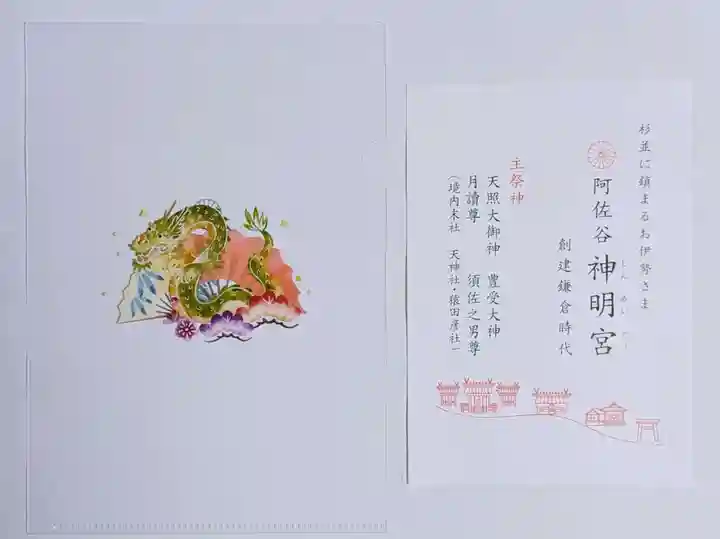 杉並に鎮まるお伊勢さま
阿佐谷神明宮
しんめいぐう
創建鎌倉時代
主祭神
天照大御神 豊受大神
月讀尊 須佐之男尊
(境内末社 天神社・猿田彦社)